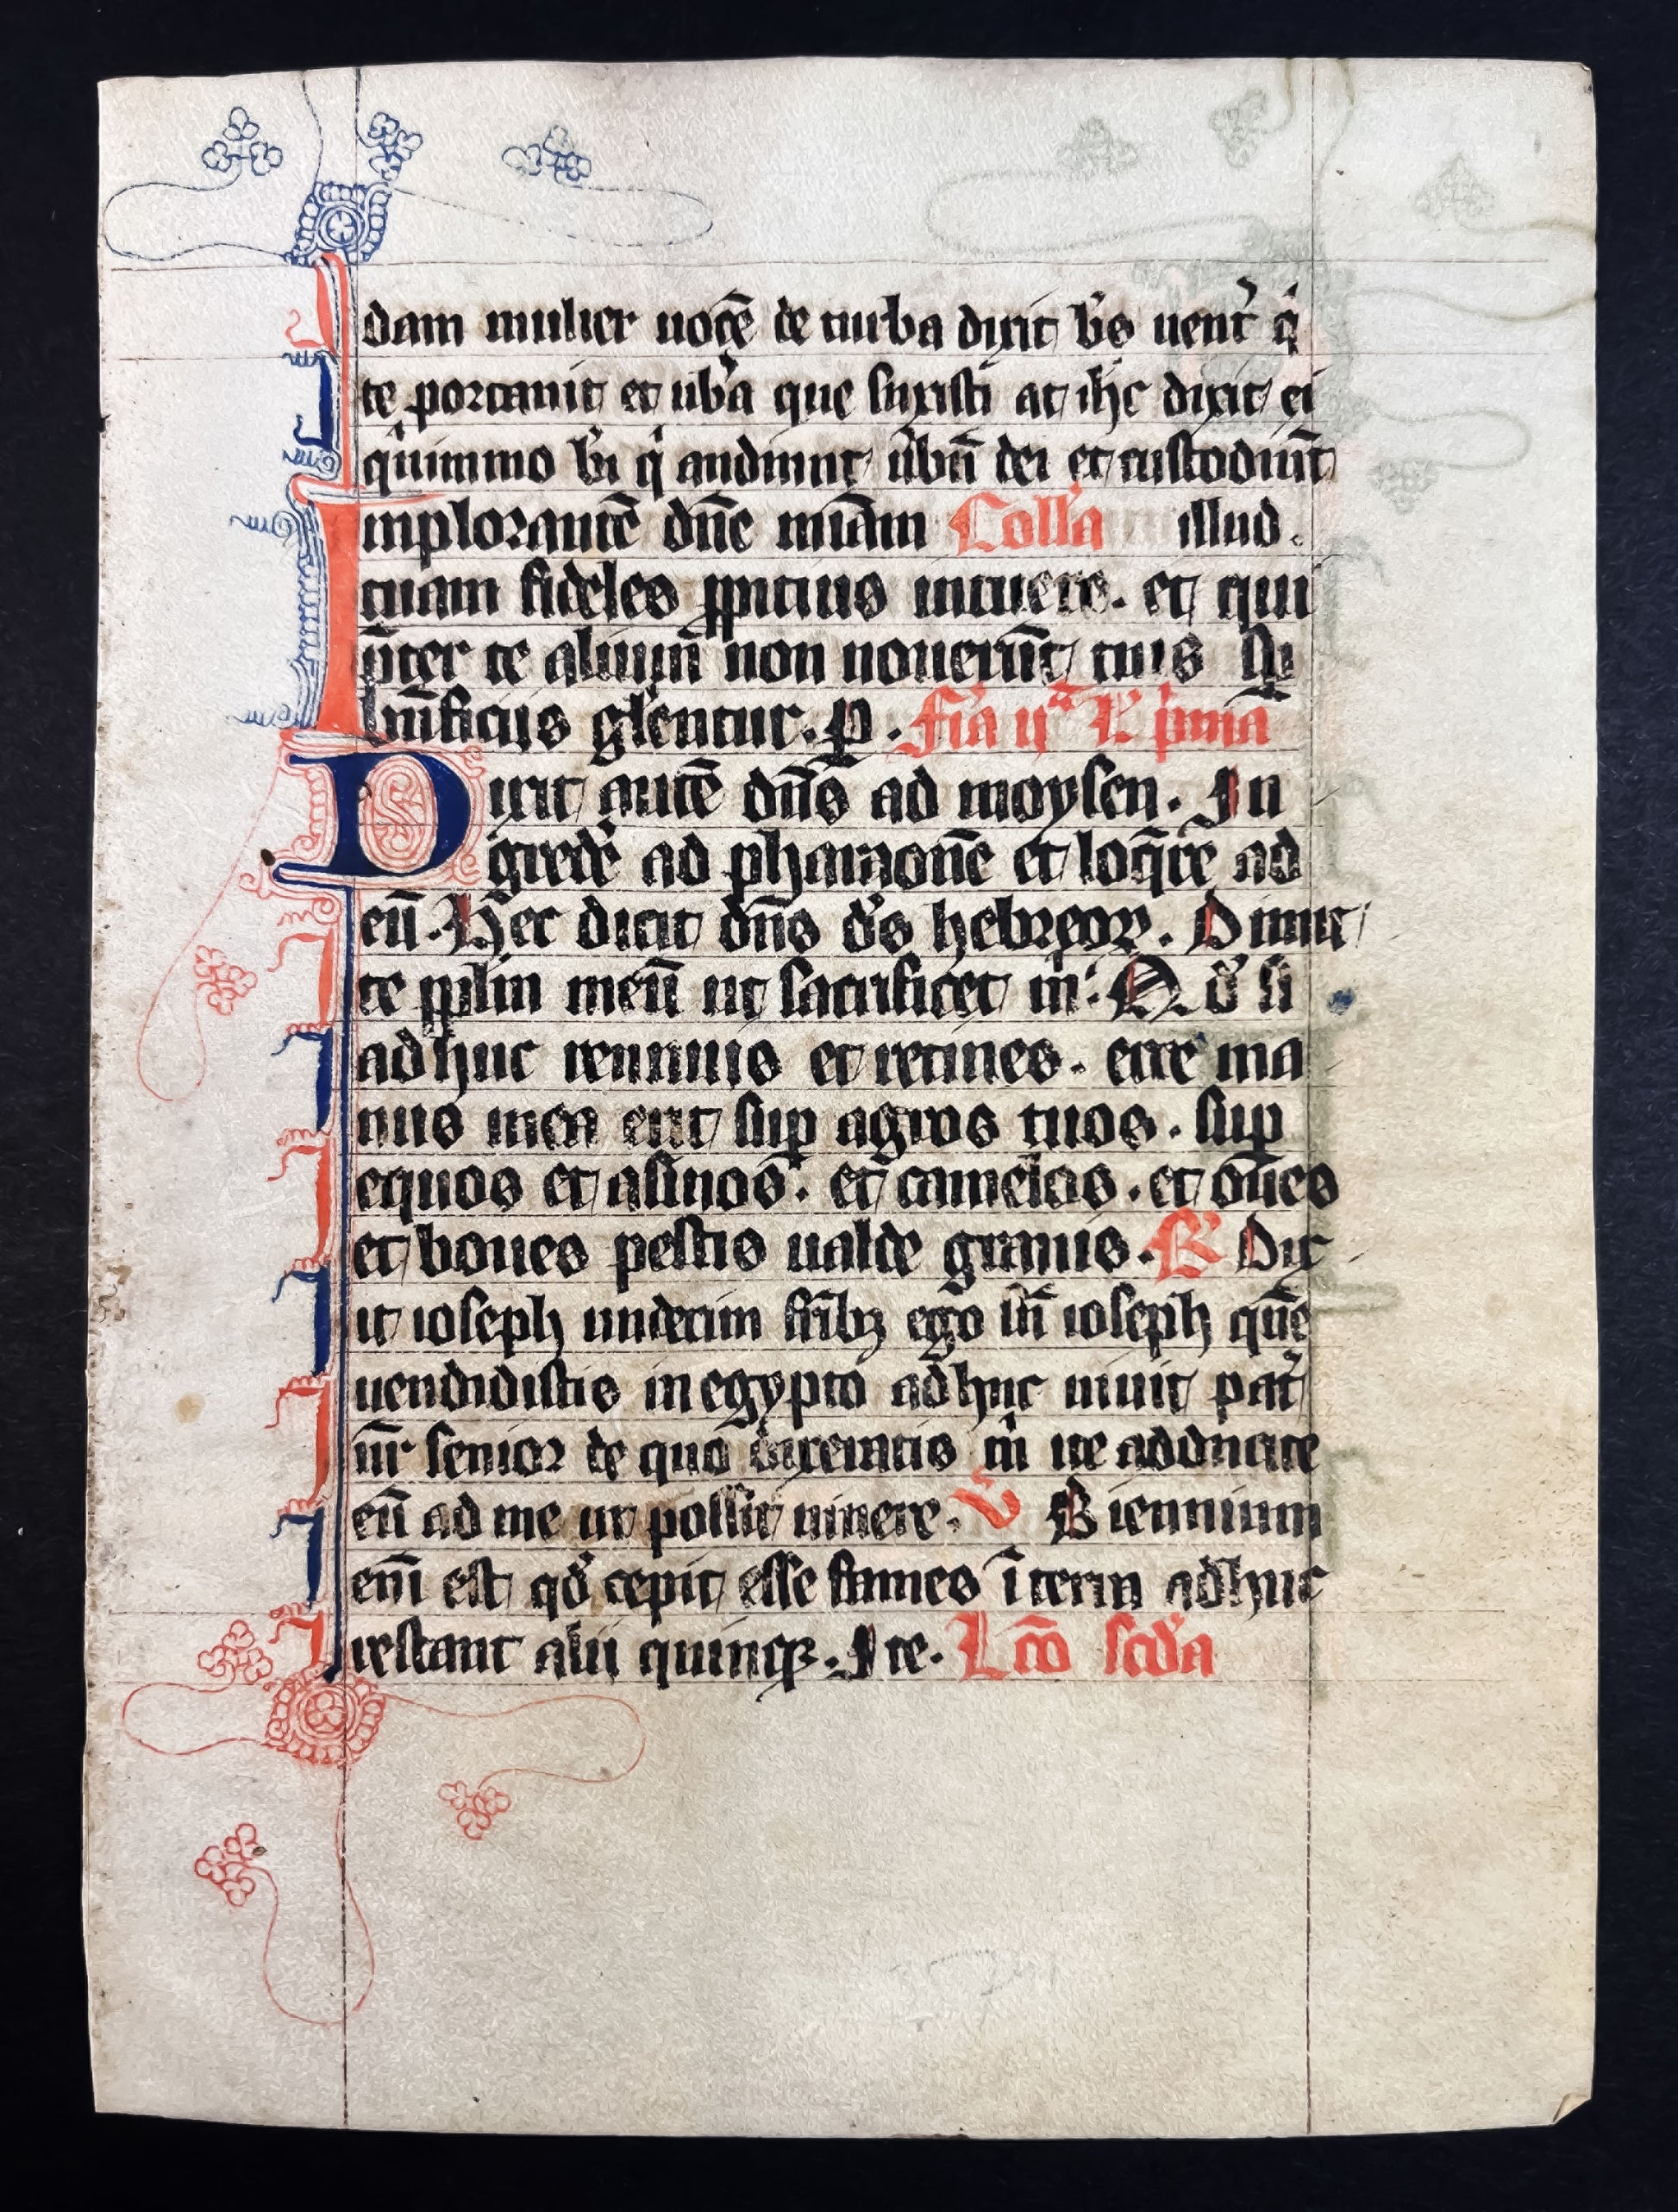 dam mulier uocē de turba dixit b̄s uent̓ q̓
te portauit et ub̓a que suxisti at ihc̄ dixit ei
q̓nimmo b̄i q̓ audiunt u̓bū dei et custodiūt
Implorantē dn̄e mīam Coll̓a illud.
tuam fideles ꝓpitius intuere. et qui
p̄ter te aliū non nouerūt tuis
bn̄ficiis gl̓entur. P. Fr̓ia ijᵃ L̓ pima
Dixit autē dn̄s ad moysen. In
gred̓e ad pharaonē et loq̄re ad
eū. Hec dicit dn̄s d̓s hebreoꝝ. Dimit
te pplm meū ut sacrificet m̓. Q d̓ si
adhuc rennuis et retines. ecce ma
nus mea erit sup agros tuos. sup
equos et asinos. et camelos. et oūes
et boues pestis ualde grauis. R̓ Dix
it ioseph undecim frīb₃ ego sū ioseph quē
uendidistis in egypto adhuc uiuit pat̓
nr̄ senior de quo dixeratis m̓ ite adducite
eū ad me ut possit uiuere. V Biennium
eni est qd̓ cepit esse fames ī terra adhuc
restant alii quinqꝫ. Ite. Lc̄o scd̓a